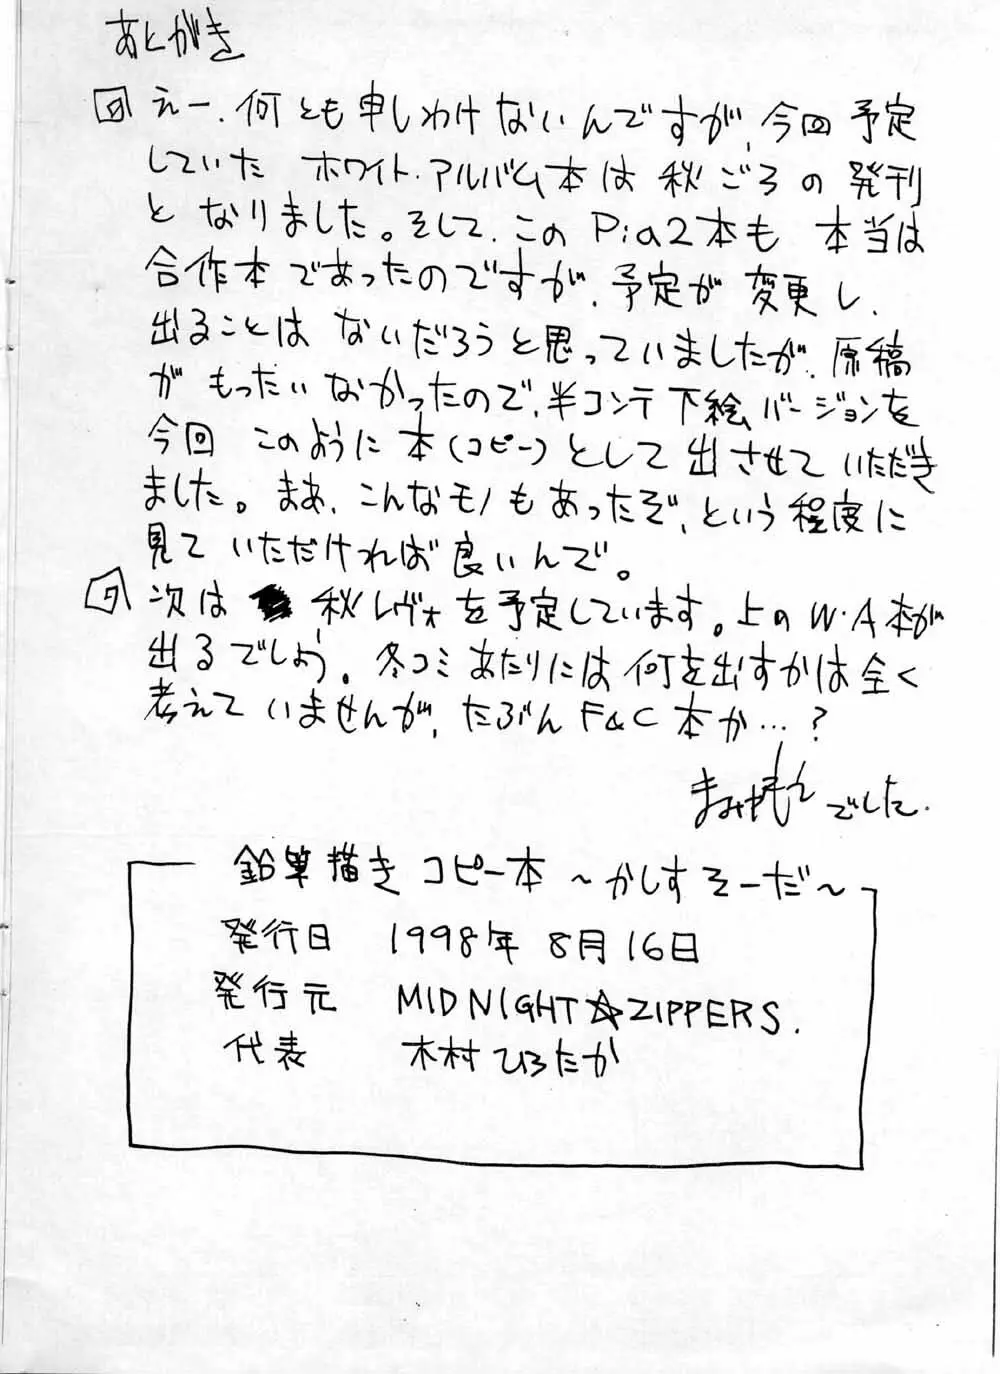 あとがき
えー、何とも申しわけないんですが、今回予定
していた ホワイト・アルバム本は 秋ごろの発刊
となりました。そして、このPia2本も 本当は
合作本であったのですが、予定が変更し、
出ることは ないだろうと思っていましたが、原稿
が もったいなかったので、半コンテ下絵バージョンを
今回 このように 本(コピー)として 出させて いただき
ました。まあ、こんなモノもあったぞ、という程度に
見て いただければ良いんで。
次は 秋レヴォを予定しています。上のW・A本が
出るでしょう。冬コミあたりには何を出すかは全く
考えて いませんが、たぶんF&C本か…?
でした。
鉛筆描きコピー本 〜かしすそーだ〜
発行日 1998年 8月16日
発行元 MIDNIGHT☆ZIPPERS.
代表 木村ひろたか